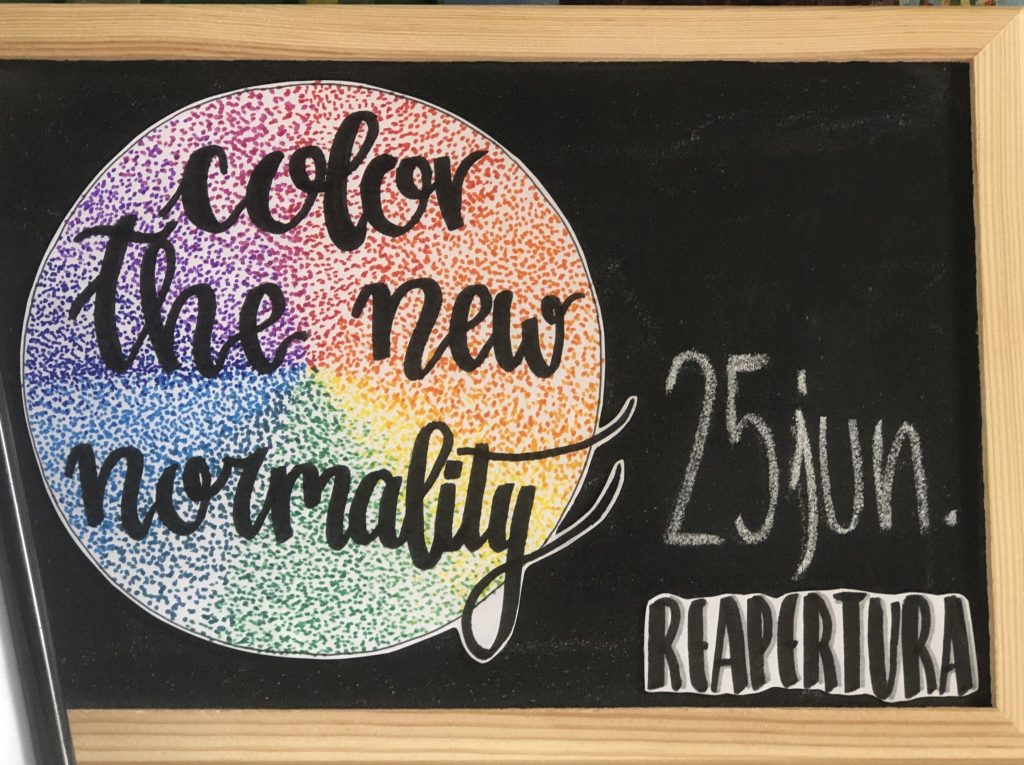 color
the new
normality
25 jun.
REAPERTURA